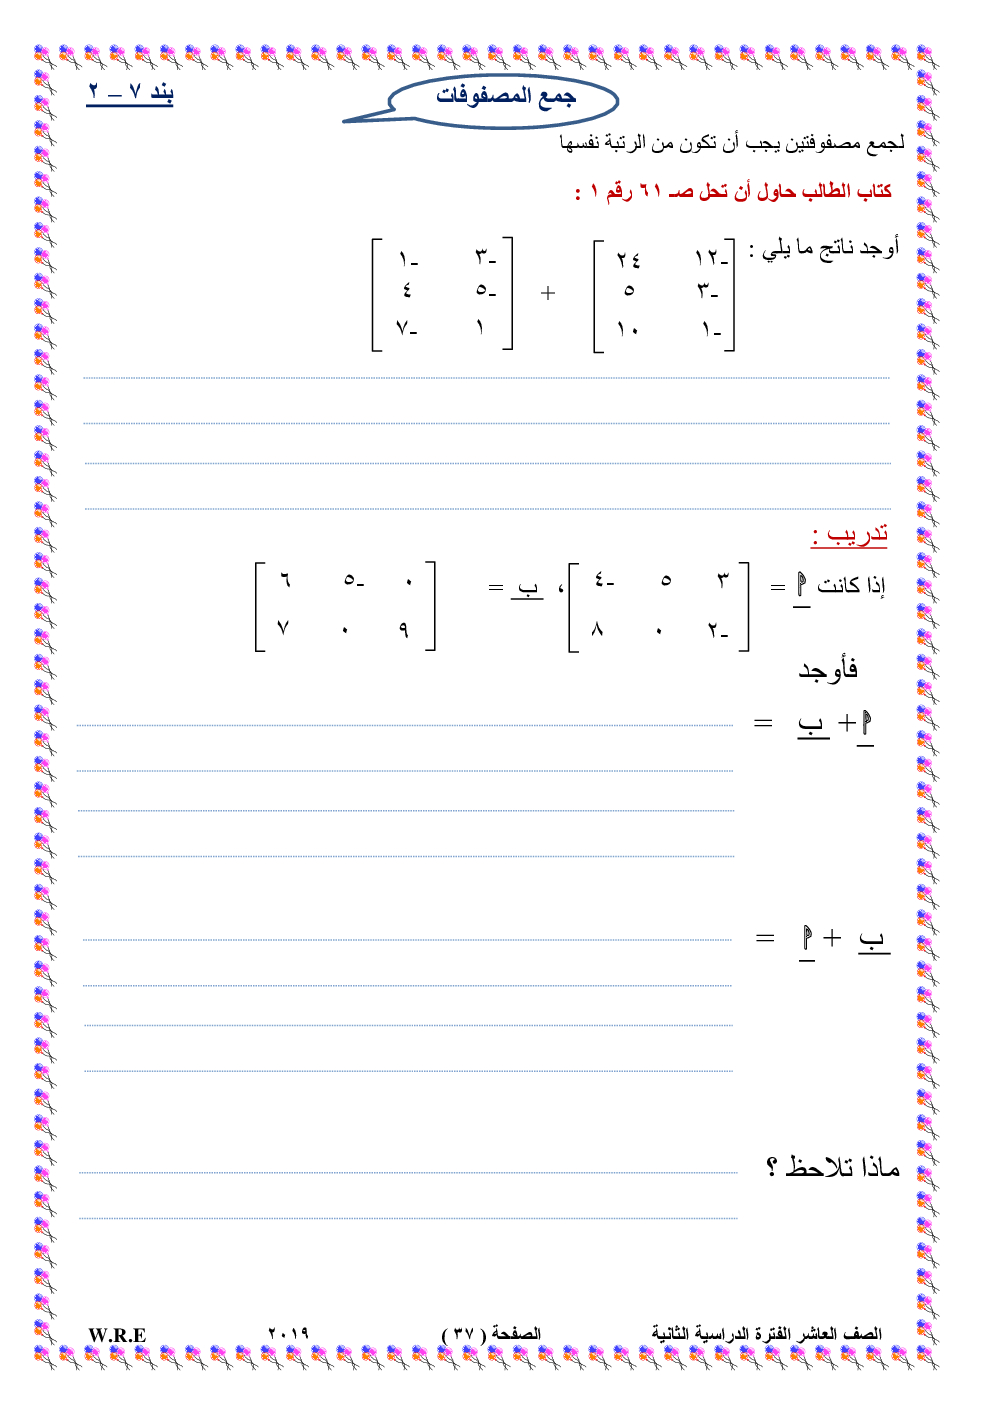 جمع المصفوفات
بند ٧ – ٢
لجمع مصفوفتين يجب أن تكون من الرتبة نفسها
كتاب الطالب حاول أن تحل صـ ٦١ رقم ١ :
أوجد ناتج ما يلي :
-١٢ ٢٤ -٣ -١
-٣ ٥ + -٥ ٤
-١ ١٠ ١ -٧
تدريب :
٣ ٥ -٤ ٠ -٥ ٦
إذا كانت أ = ، ب =
-٢ ٠ ٨ ٩ ٠ ٧
فأوجد
أ + ب =
ب + أ =
ماذا تلاحظ ؟
الصف العاشر الفترة الدراسية الثانية الصفحة ( ٣٧ ) ٢٠١٩ W.R.E